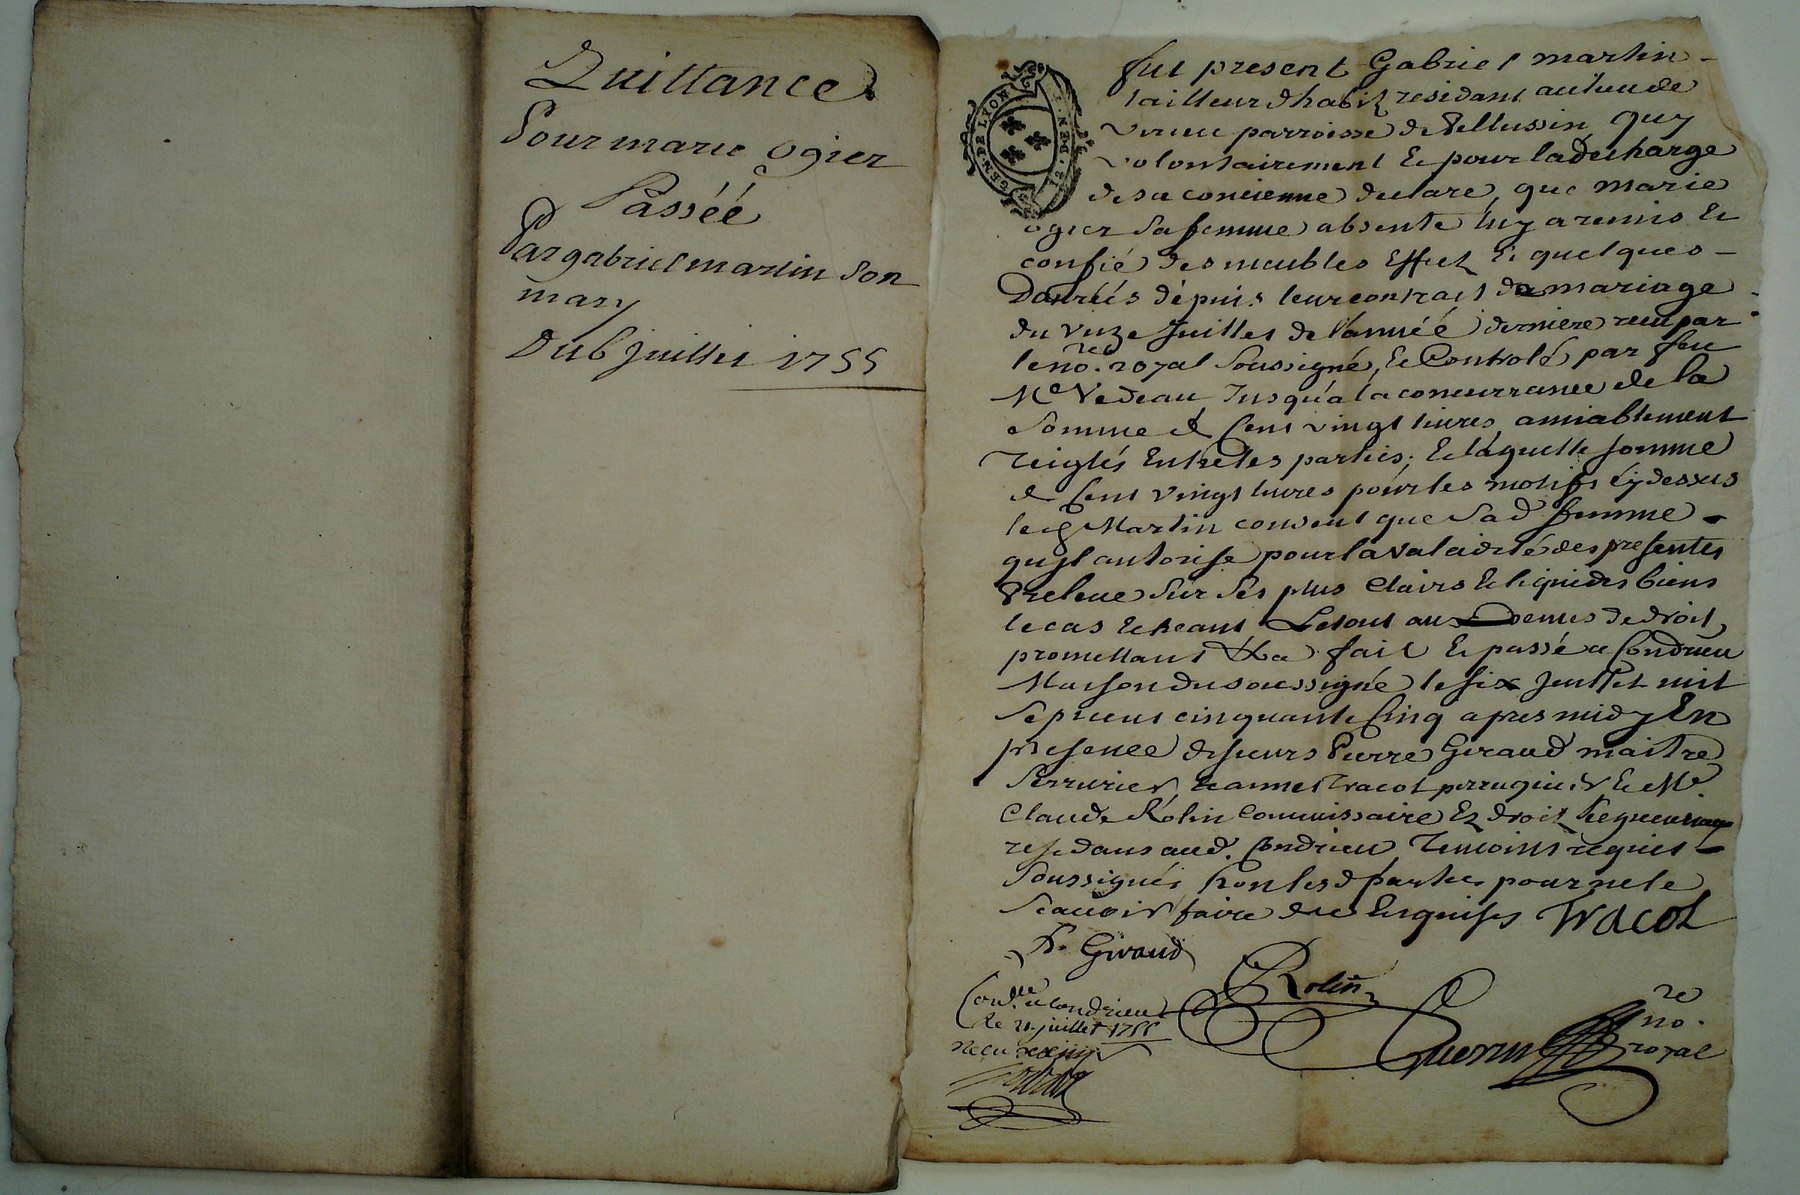 Quittance
Pour marie ogier
Passéé
Par gabriel martin son
mary
Du 6 juillet 1755
fut present Gabriel martin
tailleur d'habit residant au lieu de
virieu parroisse de Pellussin, quy
volontairement et pour la décharge
de sa concienne declare, que marie
ogier sa femme absente luy a remis et
confié des meubles effet et quelques
Danréés dépuis leur contrat de mariage
du unze Juillet de l'année derniere reçu par
le no.re royal soussigné, et Controlé par feu
Me Vedeau, Jusqu'á la concurrance de la
somme de Cent vingt livres amiablement
reiglés Entre les parties; et laquelle somme
de Cent vingt livres pour les motifs cy dessus
led Martin consent que sad. femme
qu'jl autorise pour la validité des presentes
Preleve sur ses plus clairs et liquides biens
le cas écheant Le tout aux Demes de droit,
promettant &a fait et passé a Condrieu
Maison du soussigné le six Juillet mil
sept cent cinquante Cinq apres midy En
presence de sieurs Pierre Giraud maitre
Serrurier, Jeannet tracol perruquier et Me
Claude Rolin Commissaire Ez droit
residans aud. Condrieu, Temoins requis
soussignés non lesd parties pour ne le
scavoir faire de ce Enquises Tracol
P. Giraud
Rolin
Con.lle a Condrieu
le 21 juillet 1755
Guerin
no.re
royal
GEN. DE LION